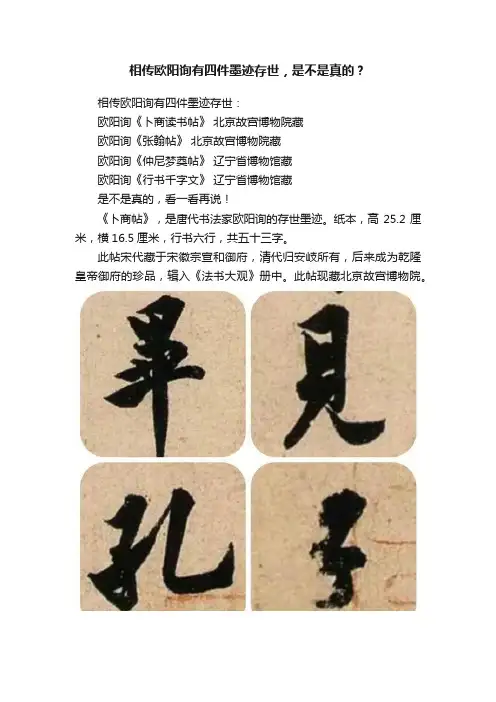 相传欧阳询有四件墨迹存世，是不是真的？
相传欧阳询有四件墨迹存世：
欧阳询《卜商读书帖》 北京故宫博物院藏
欧阳询《张翰帖》 北京故宫博物院藏
欧阳询《仲尼梦奠帖》 辽宁省博物馆藏
欧阳询《行书千字文》 辽宁省博物馆藏
是不是真的，看一看再说！
《卜商帖》，是唐代书法家欧阳询的存世墨迹。纸本，高25.2厘
米，横16.5厘米，行书六行，共五十三字。
此帖宋代藏于宋徽宗宣和御府，清代归安岐所有，后来成为乾隆
皇帝御府的珍品，辑入《法书大观》册中。此帖现藏北京故宫博物院。
畢 見
孔 子